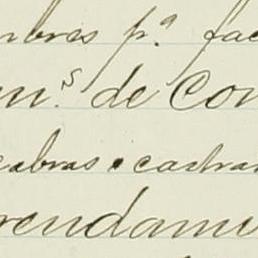 mbras p.ª fac
m.s de Con
cabras e castra
rendami